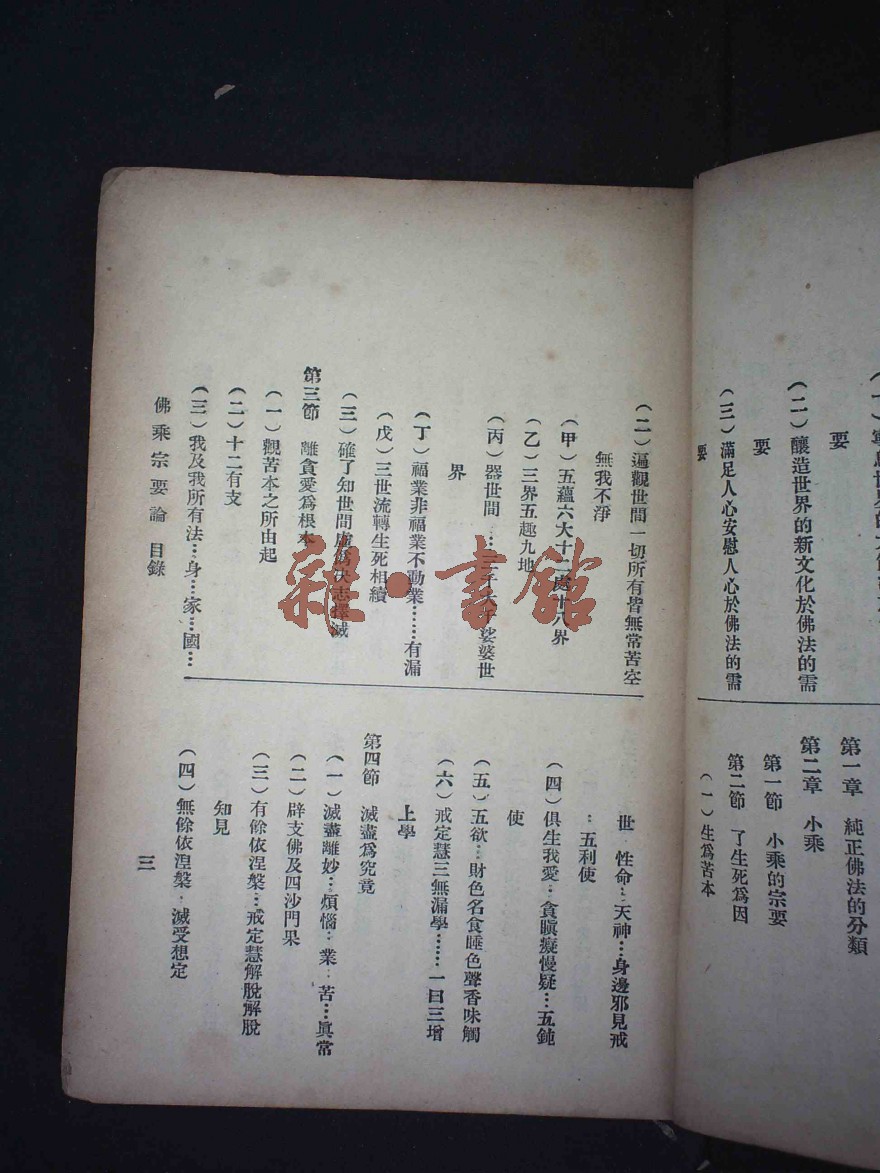 要
（二）釀造世界的新文化於佛法的需
要
（三）滿足人心安慰人心於佛法的需
要
第一章　純正佛法的分類
第二章　小乘
第一節　小乘的宗要
第二節　了生死爲因
（一）生爲苦本
（二）遍觀世間一切所有皆無常苦空
無我不淨
（甲）五蘊六大十二處十八界
（乙）三界五趣九地
（丙）器世間……三千大千娑婆世
界
（丁）福業非福業不動業……有漏
（戊）三世流轉生死相續
（三）確了知世間虛僞決志擇滅
第三節　離貪愛爲根本
（一）觀苦本之所由起
（二）十二有支
（三）我及我所有法…身…家…國…
世…性命…天神…身邊邪見戒
…五利使
（四）俱生我愛…貪瞋癡慢疑…五鈍
使
（五）五欲…財色名食睡色聲香味觸
（六）戒定慧三無漏學……一曰三增
上學
第四節　滅盡爲究竟
（一）滅盡離妙…煩惱…業…苦…眞常
（二）辟支佛及四沙門果
（三）有餘依涅槃…戒定慧解脫解脫
知見
（四）無餘依涅槃…滅受想定
佛乘宗要論　目錄
三
雜·書館